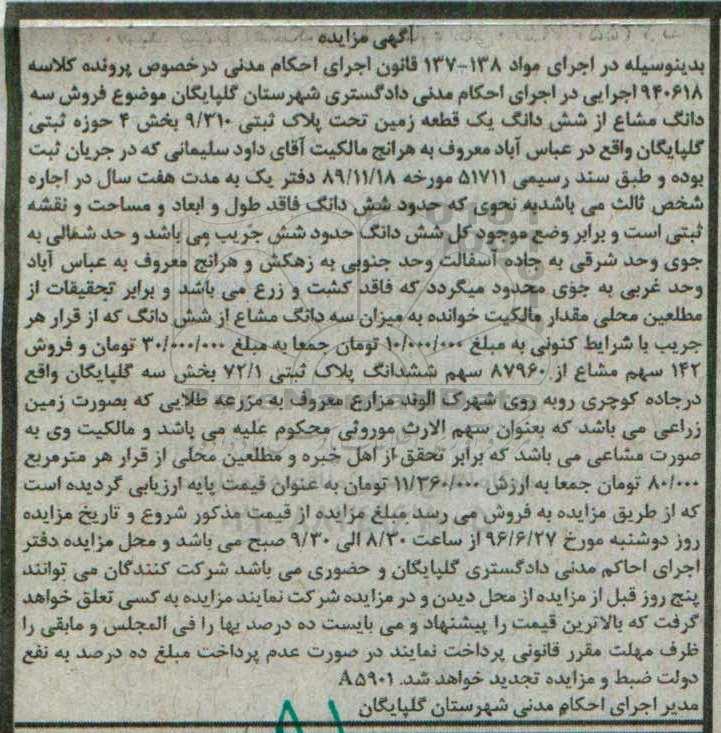 آگهی مزایده
بدینوسیله در اجرای مواد ۱۳۸-۱۳۷ قانون اجرای احکام مدنی درخصوص پرونده کلاسه
۹۴۰۶۱۸ اجرایی در اجرای احکام مدنی دادگستری شهرستان گلپایگان موضوع فروش سه
دانگ مشاع از شش دانگ یک قطعه زمین تحت پلاک ثبتی ۹/۳۱۰ بخش ۴ حوزه ثبتی
گلپایگان واقع در عباس آباد معروف به هرانج مالکیت آقای داود سلیمانی که در جریان ثبت
بوده و طبق سند رسمی ۵۱۷۱۱ مورخه ۸۹/۱۱/۱۸ دفتر یک به مدت هفت سال در اجاره
شخص ثالث می باشدبه نحوی که حدود شش دانگ فاقد طول و ابعاد و مساحت و نقشه
ثبتی است و برابر وضع موجود کل شش دانگ حدود شش جریب می باشد و حد شمالی به
جوی وحد شرقی به جاده آسفالت وحد جنوبی به زهکش و هرانج معروف به عباس آباد
وحد غربی به جوی محدود میگردد که فاقد کشت و زرع می باشد و برابر تحقیقات از
مطلعین محلی مقدار مالکیت خوانده به میزان سه دانگ مشاع از شش دانگ که از قرار هر
جریب با شرایط کنونی به مبلغ ۱۰/۰۰۰/۰۰۰ تومان جمعا به مبلغ ۳۰/۰۰۰/۰۰۰ تومان و فروش
۱۴۲ سهم مشاع از ۸۷۹۶۰ سهم ششدانگ پلاک ثبتی ۷۲/۱ بخش سه گلپایگان واقع
درجاده کوچری روبه روی شهرک الوند مزارع معروف به مزرعه طلایی که بصورت زمین
زراعی می باشد که بعنوان سهم الارث موروثی محکوم علیه می باشد و مالکیت وی به
صورت مشاعی می باشد که برابر تحقق از اهل خبره و مطلعین محلی از قرار هر مترمربع
۸۰/۰۰۰ تومان جمعا به ارزش ۱۱/۳۶۰/۰۰۰ تومان به عنوان قیمت پایه ارزیابی گردیده است
که از طریق مزایده به فروش می رسد مبلغ مزایده از قیمت مذکور شروع و تاریخ مزایده
روز دوشنبه مورخ ۹۶/۶/۲۷ از ساعت ۸/۳۰ الی ۹/۳۰ صبح می باشد و محل مزایده دفتر
اجرای احاکم مدنی دادگستری گلپایگان و حضوری می باشد شرکت کنندگان می توانند
پنج روز قبل از مزایده از محل دیدن و در مزایده شرکت نمایند مزایده به کسی تعلق خواهد
گرفت که بالاترین قیمت را پیشنهاد و می بایست ده درصد بها را فی المجلس و مابقی را
ظرف مهلت مقرر قانونی پرداخت نمایند در صورت عدم پرداخت مبلغ ده درصد به نفع
دولت ضبط و مزایده تجدید خواهد شد. A۵۹۰۱
مدیر اجرای احکام مدنی شهرستان گلپایگان